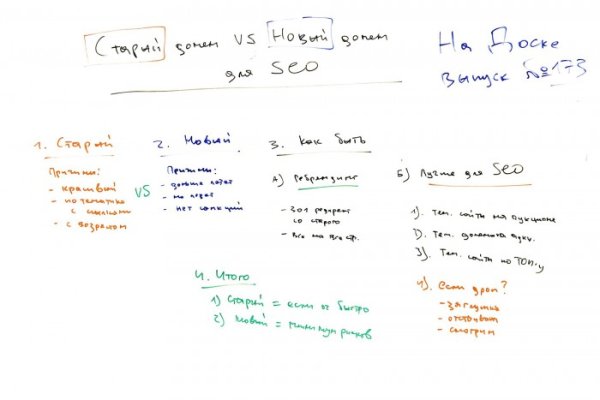 Старый домен VS Новый домен
для SEO
На Доске
выпуск №173
1. Старый
Причины:
- красивый
- по тематике
с ссылками
- с возрастом
VS
2. Новый
Причины:
- дольше
- нет санкций
3. Как быть
А) Ребрендинг
- 301 редирект
со старого
- Все на все стр.
Б) Лучше для SEO
1). Тем. сайты на аукционе
2). Тем. домены
3). Тем. сайты по ТОП-у
4). Если дроп?
- загрузка
- смотрим
4. Итого
1) Старый = если оч быстро
2) Новый = минимум рисков